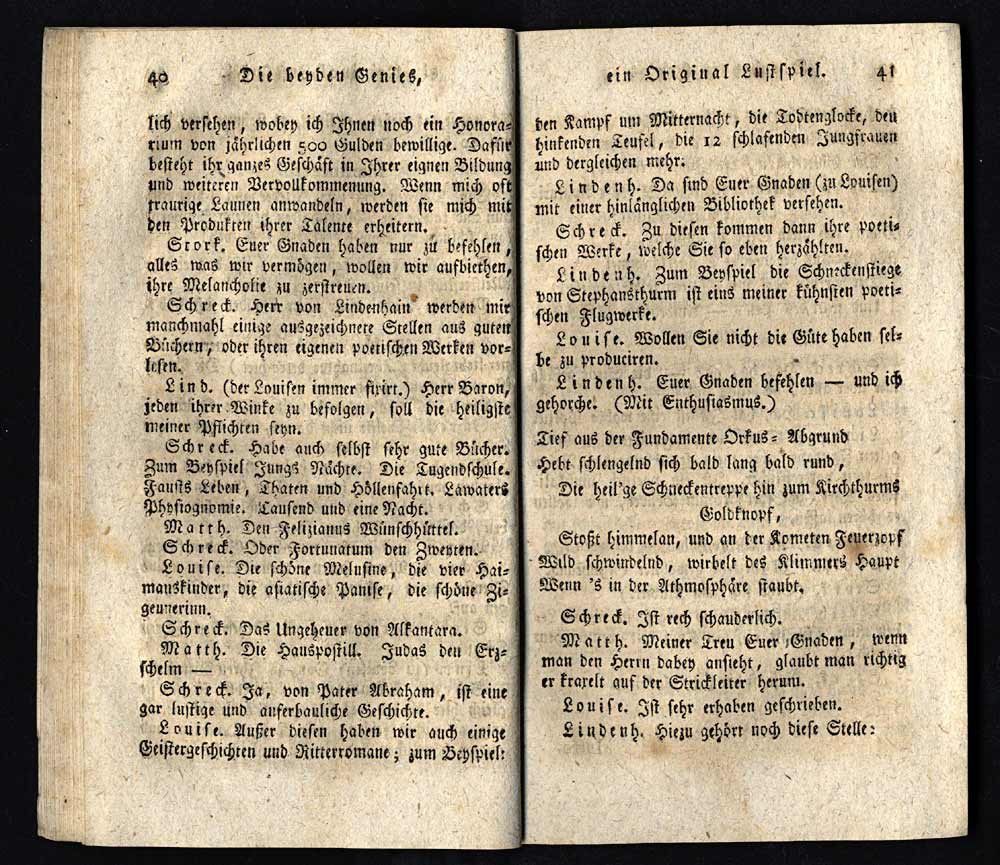 40 Die beyden Genies,
lich versehen, wobey ich Ihnen noch ein Honora-
rium von jährlichen 500 Gulden bewillige. Dafür
besteht ihr ganzes Geschäft in Ihrer eignen Bildung
und weiteren Vervollkommenung. Wenn mich oft
traurige Launen anwandeln, werden sie mich mit
den Produkten ihrer Talente erheitern.
Stork. Euer Gnaden haben nur zu befehlen,
alles was wir vermögen, wollen wir aufbiethen,
ihre Melancholie zu zerstreuen.
Schreck. Herr von Lindenhain werden mir
manchmahl einige ausgezeichnete Stellen aus guten
Büchern, oder ihren eigenen poetischen Werken vor-
lesen.
Lind. (der Louisen immer fixirt.) Herr Baron,
jeden ihrer Winke zu befolgen, soll die heiligste
meiner Pflichten seyn.
Schreck. Habe auch selbst sehr gute Bücher.
Zum Beyspiel Jungs Nächte. Die Tugendschule.
Fausts Leben, Thaten und Höllenfahrt. Lawaters
Physiognomie. Tausend und eine Nacht.
Matth. Den Felizianus Wünschhüttel.
Schreck. Oder Fortunatum den Zweyten.
Louise. Die schöne Melusine, die vier Hai-
manskinder, die asiatische Panise, die schöne Zi-
geunerinn.
Schreck. Das Ungeheuer von Alkantara.
Matth. Die Hauspostill. Judas den Erz-
schelm —
Schreck. Ja, von Pater Abraham, ist eine
gar lustige und auferbauliche Geschichte.
Louise. Außer diesen haben wir auch einige
Geistergeschichten und Ritterromane; zum Beyspiel:
ein Original Lustspiel. 41
den Kampf um Mitternacht, die Todtenglocke, den
hinkenden Teufel, die 12 schlafenden Jungfrauen
und dergleichen mehr.
Lindenh. Da sind Euer Gnaden (zu Louisen)
mit einer hinlänglichen Bibliothek versehen.
Schreck. Zu diesen kommen dann ihre poeti-
schen Werke, welche Sie so eben herzählten.
Lindenh. Zum Beyspiel die Schneckenstiege
von Stephansthurm ist eins meiner kühnsten poeti-
schen Flugwerke.
Louise. Wollen Sie nicht die Güte haben sel-
be zu produciren.
Lindenh. Euer Gnaden befehlen — und ich
gehorche. (Mit Enthusiasmus.)
Tief aus der Fundamente Orkus- Abgrund
Hebt schlengelnd sich bald lang bald rund,
Die heil'ge Schneckentreppe hin zum Kirchthurms
Goldknopf,
Stoßt himmelan, und an der Kometen Feuerzopf
Wild schwindelnd, wirbelt des Klimmers Haupt
Wenn 's in der Athmosphäre staubt.
Schreck. Ist rech schauderlich.
Matth. Meiner Treu Euer Gnaden, wenn
man den Herrn dabey ansieht, glaubt man richtig
er kraxelt auf der Strickleiter herum.
Louise. Ist sehr erhaben geschrieben.
Lindenh. Hiezu gehört noch diese Stelle: